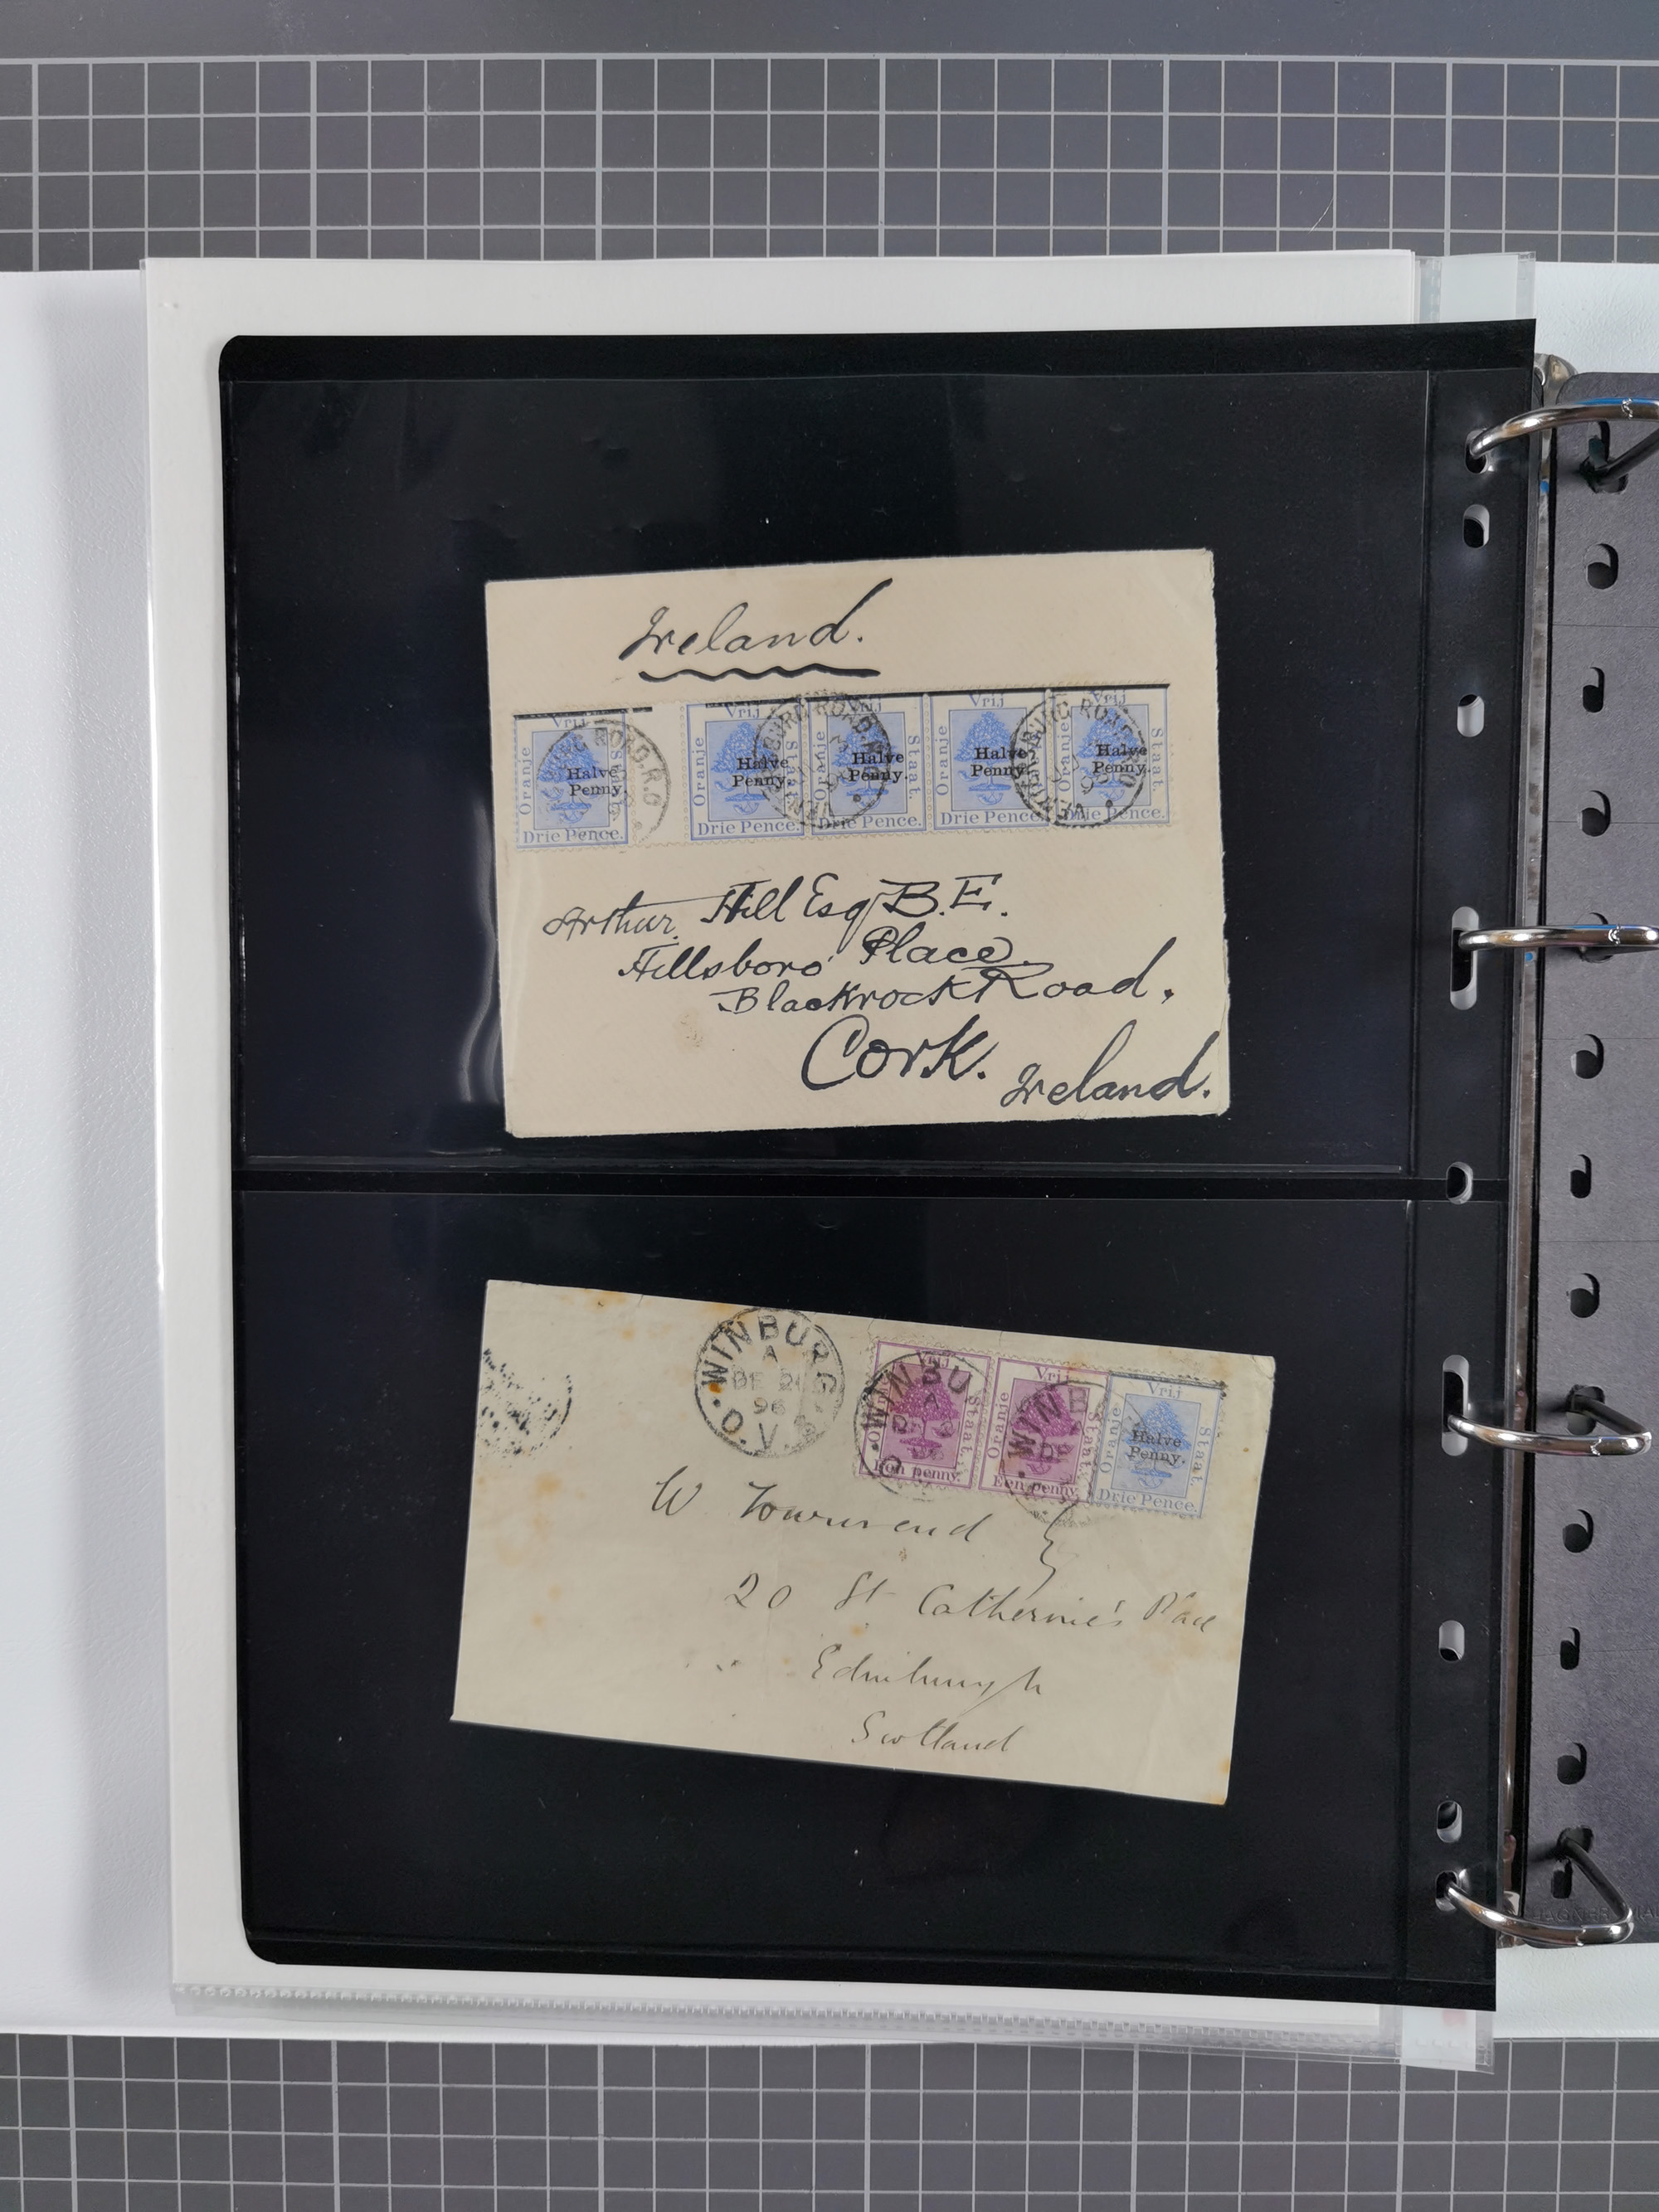 Ireland.
Vrij Vrij Vrij Vrij Vrij
Oranje Staat. Oranje Staat. Oranje Oranje Oranje Staat.
Halve Penny. Halve Penny. Halve Penny. Halve Penny. Halve Penny.
Drie Pence. Drie Pence. Drie Pence. Drie Pence. Drie Pence.
ROAD. R.O
Arthur Hill Esq B.E.
Hillsboro' Place.
Blackrock Road.
Cork.
Ireland.
WINBURG
A
DE 2
96
O.V.S.
Vrij Vrij Vrij
WINBU
A
WINB
DE
Staat. Oranje Staat. Oranje Staat.
Halve Penny.
Een penny. Een penny. Drie Pence.
W Townsend
20 St Catherine's Place
Edinburgh
Scotland